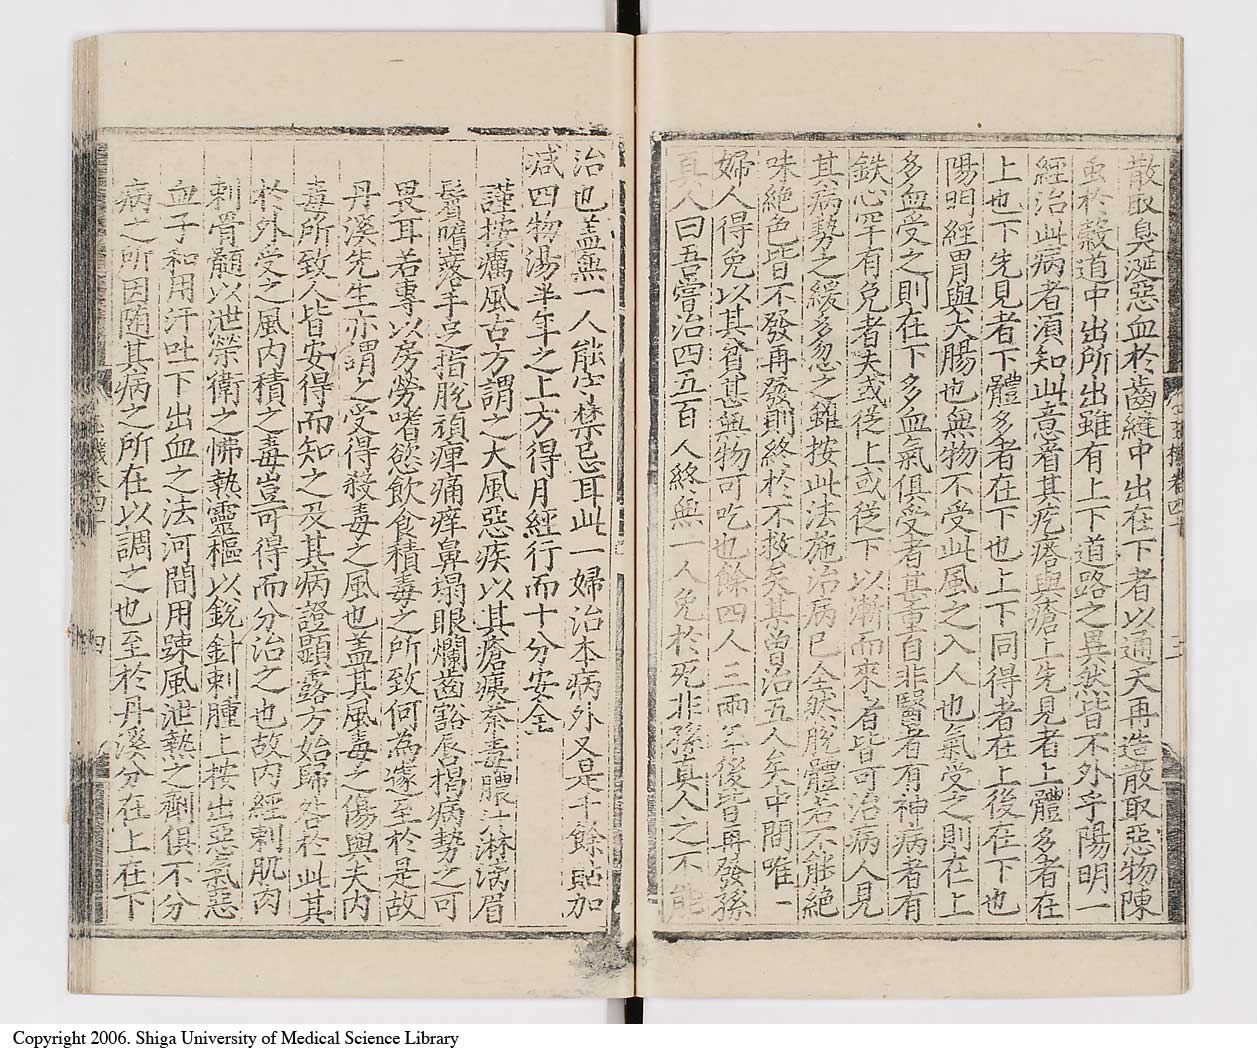 散取臭涎惡血於齒縫中出在下者以通天再造散取惡物陳
虫於穀道中出所出雖有上下道路之異然皆不外乎陽明一
經治此病者須知此意看其疙瘩與瘡上先見者上體多者在
上也下先見者下體多者在下也上下同得者在上後在下也
陽明經胃與大腸也無物不受此風之入人也氣受之則在上
多血受之則在下多血氣俱受者甚重自非醫者有神病者有
鉄心罕有免者夫或從上或從下以漸而來者皆可治病人見
其病勢之緩多忽之雖按此法施治病已全然脫體若不能絶
味絶色皆不發再發則終於不救矣某曽治五人矣中間唯一
婦人得免以其貧甚無物可吃也餘四人三兩年後皆再發孫
真人曰吾嘗治四五百人終無一人免於死非孫真人之不能
治也盖無一人能守禁忌耳此一婦治本病外又是千餘貼加
减四物湯半年之上方得月經行而十分安全
謹按癘風古方謂之大風惡疾以其瘡痍荼毒膿汁淋漓眉
鬢墮落手足指脫頑痺痛痒鼻塌眼爛齒豁唇揭病勢之可
畏耳若專以房勞嗜慾飲食積毒之所致何為遽至於是故
丹溪先生亦謂之受得殺毒之風也盖其風毒之傷與夫内
毒所致人皆安得而知之及其病證顯露方始歸咎於此其
於外受之風内積之毒豈可得而分治之也故内經刺肌肉
刺骨髓以泄榮衛之怫熱靈樞以銳針刺腫上按出惡氣惡
血子和用汗吐下出血之法河間用踈風泄熱之劑俱不分
病之所因随其病之所在以調之也至於丹溪分在上在下
卷四
四
Copyright 2006. Shiga University of Medical Science Library